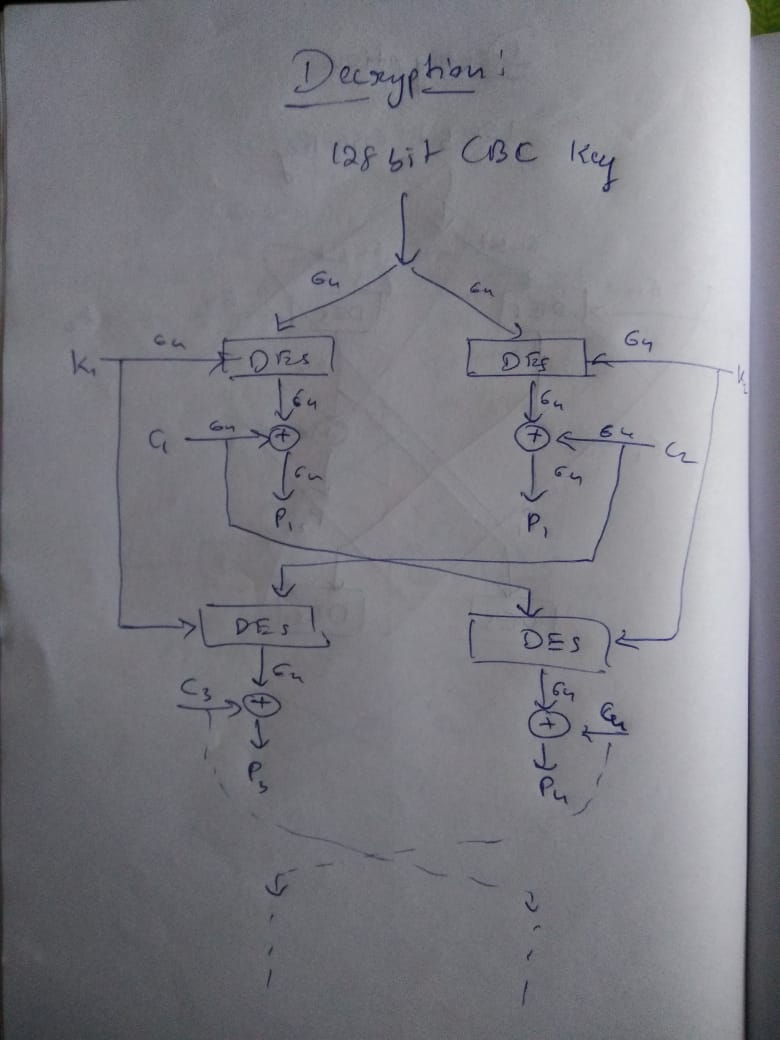 Decryption:
128 bit CBC Key
64 64
K₁ 64 DES DES 64
64 64
C₁ 64 + + 64 C₂
64 64
P₁ P₁
DES DES
64 64
C₃ + +
P₃ P₄